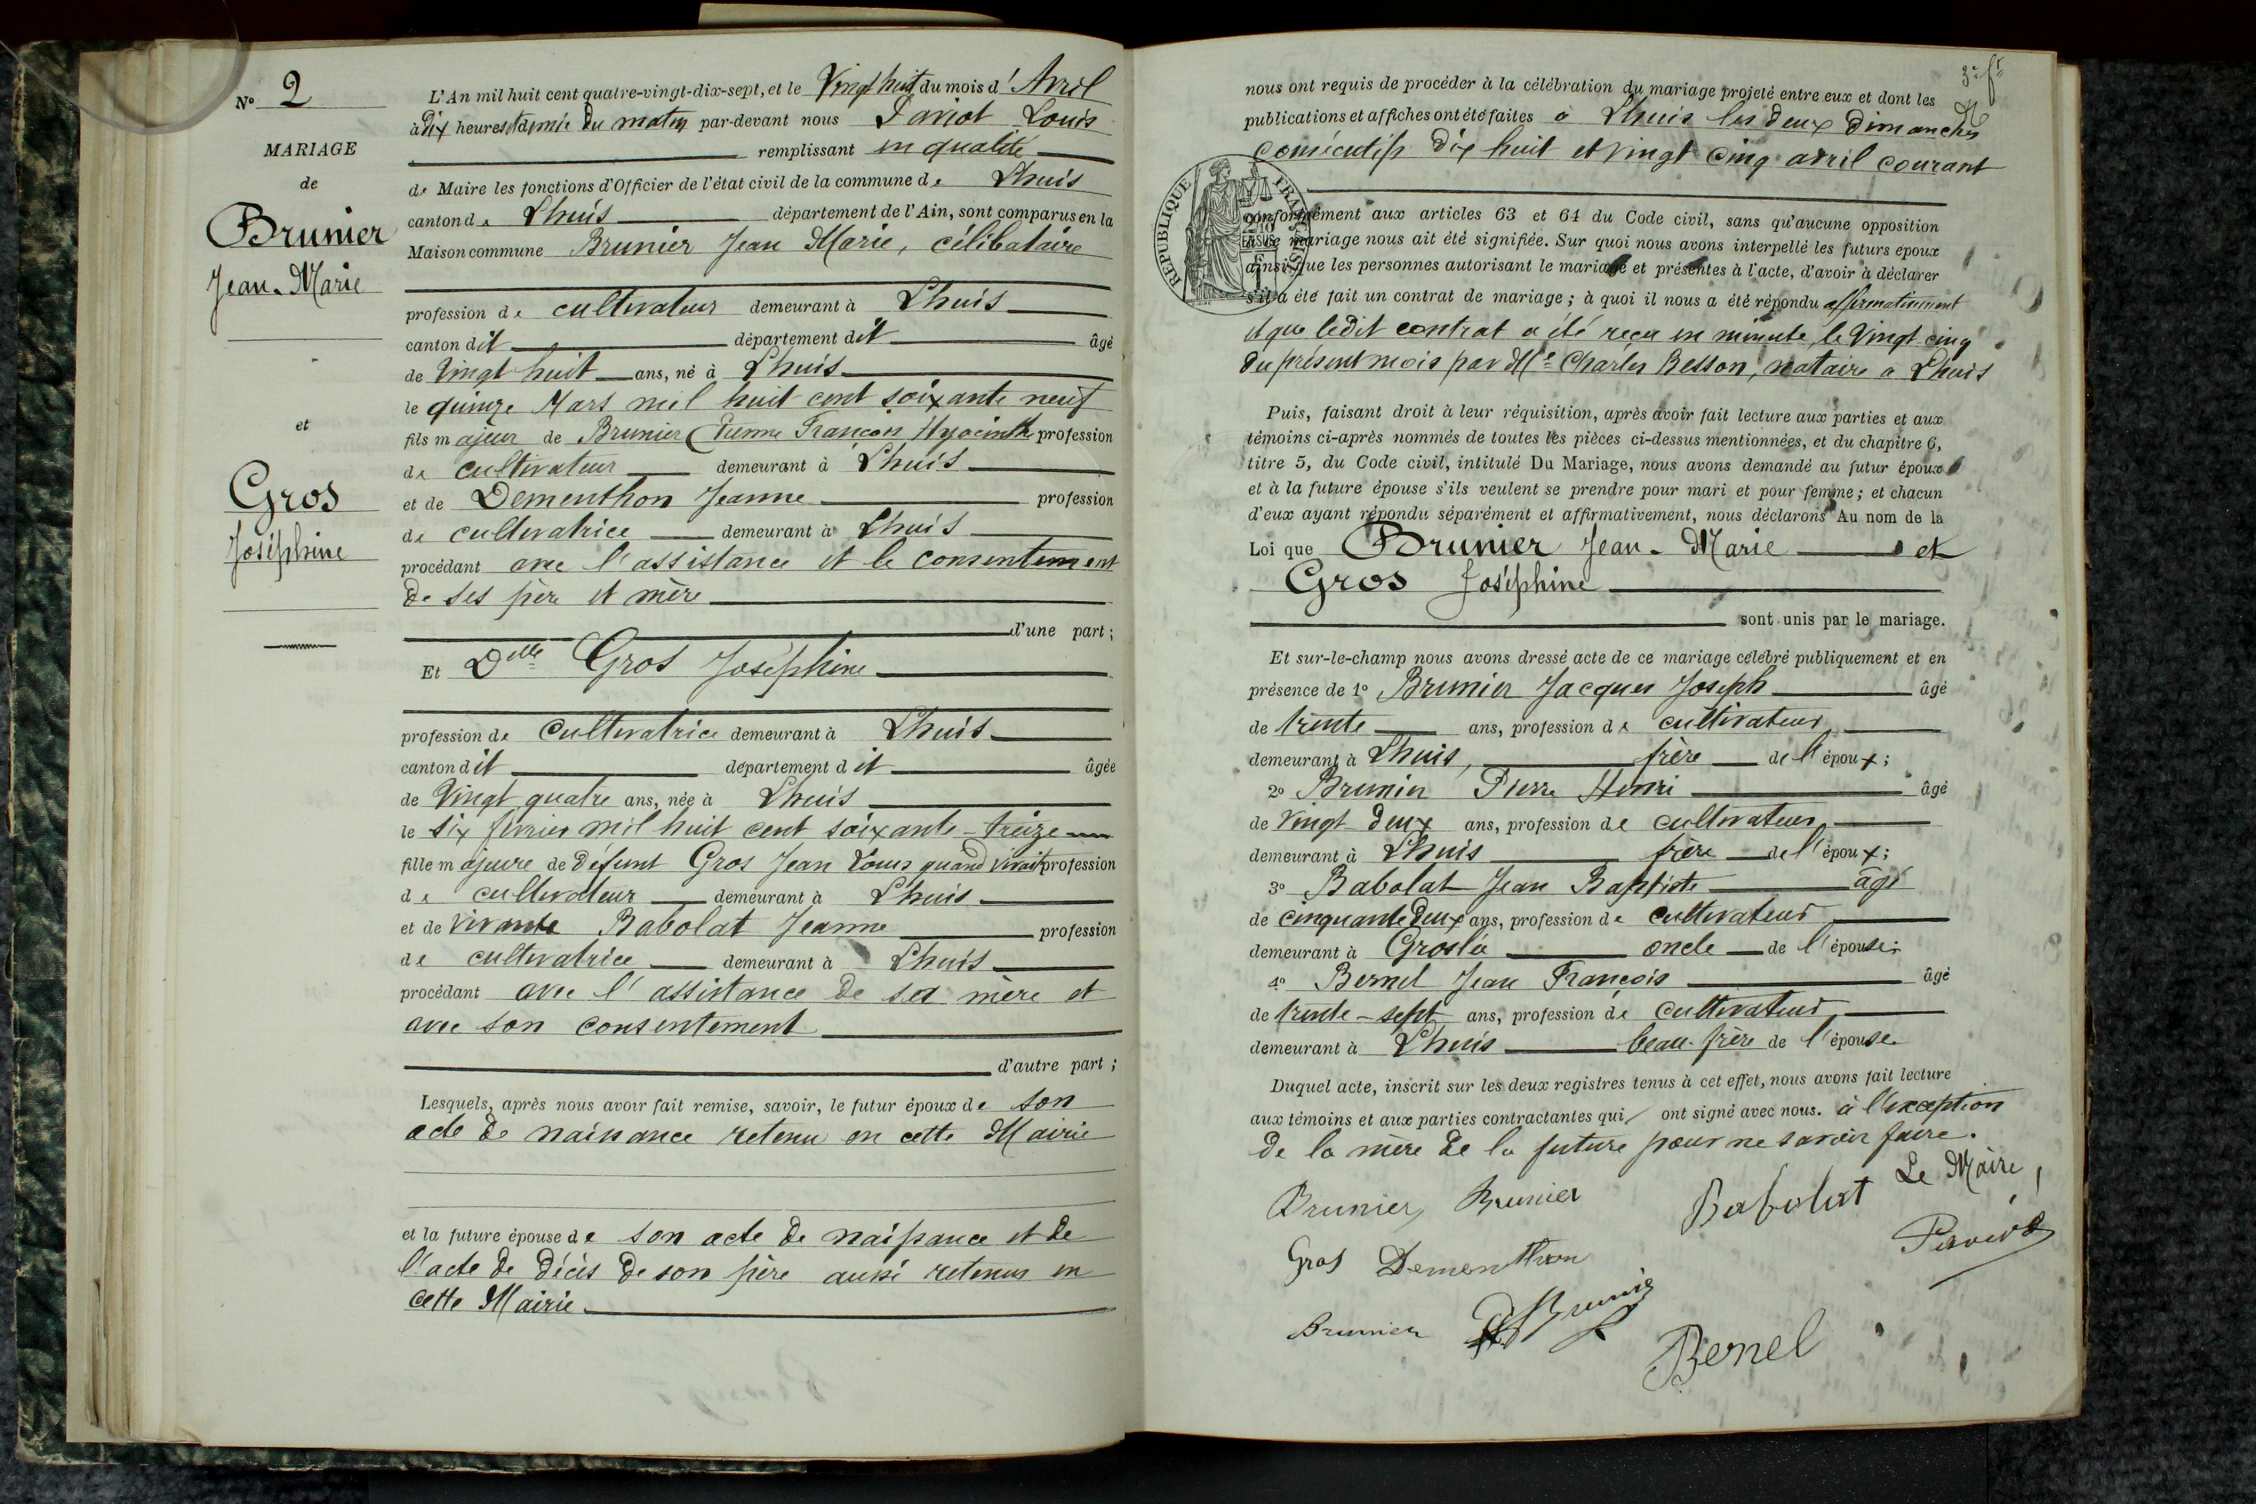 N° 2
MARIAGE
de
Brunier
Jean-Marie
et
Gros
Joséphine
L'An mil huit cent quatre-vingt-dix-sept, et le Vingt huit du mois d'Avril
à Dix heures et demie du matin par-devant nous Louis
remplissant en qualité
de Maire les fonctions d'Officier de l'état civil de la commune de Lhuis
canton de Lhuis département de l'Ain, sont comparus en la
Maison commune Brunier Jean Marie, célibataire
profession de cultivateur demeurant à Lhuis
canton dit département dit âgé
de Vingt huit ans, né à Lhuis
le quinze Mars mil huit cent soixante neuf
fils majeur de Brunier Etienne François Hyacinthe profession
de cultivateur demeurant à Lhuis
et de Dementhon Jeanne profession
de cultivatrice demeurant à Lhuis
procédant avec l'assistance et le consentement
de ses père et mère
d'une part;
Et Delle Gros Joséphine
profession de cultivatrice demeurant à Lhuis
canton dit département dit âgée
de Vingt quatre ans, née à Lhuis
le six février mil huit cent soixante-treize
fille majeure de défunt Gros Jean Louis quand vivait profession
de cultivateur demeurant à Lhuis
et de vivante Babolat Jeanne profession
de cultivatrice demeurant à Lhuis
procédant avec l'assistance de sa mère et
avec son consentement
d'autre part;
Lesquels, après nous avoir fait remise, savoir, le futur époux de son
acte de naissance retenu en cette Mairie
et la future épouse de son acte de naissance et de
l'acte de décès de son père aussi retenus en
cette Mairie
3e ft
nous ont requis de procéder à la célébration du mariage projeté entre eux et dont les
publications et affiches ont été faites à Lhuis les deux dimanches
consécutifs dix huit et vingt cinq avril courant
RÉPUBLIQUE FRANÇAISE
conformément aux articles 63 et 64 du Code civil, sans qu'aucune opposition
à ce mariage nous ait été signifiée. Sur quoi nous avons interpellé les futurs époux
ainsi que les personnes autorisant le mariage et présentes à l'acte, d'avoir à déclarer
s'il a été fait un contrat de mariage; à quoi il nous a été répondu affirmativement
et que ledit contrat a été reçu en minute, le Vingt cinq
du présent mois par Me Charles Besson, notaire à Lhuis
Puis, faisant droit à leur réquisition, après avoir fait lecture aux parties et aux
témoins ci-après nommés de toutes les pièces ci-dessus mentionnées, et du chapitre 6,
titre 5, du Code civil, intitulé Du Mariage, nous avons demandé au futur époux
et à la future épouse s'ils veulent se prendre pour mari et pour femme; et chacun
d'eux ayant répondu séparément et affirmativement, nous déclarons Au nom de la
Loi que Brunier Jean-Marie et
Gros Joséphine
sont unis par le mariage.
Et sur-le-champ nous avons dressé acte de ce mariage célébré publiquement et en
présence de 1° Brunier Jacques Joseph âgé
de trente ans, profession de cultivateur
demeurant à Lhuis, frère de l'époux;
2° Brunier Pierre Henri âgé
de vingt deux ans, profession de cultivateur
demeurant à Lhuis frère de l'époux;
3° Babolat Jean Baptiste âgé
de cinquante deux ans, profession de cultivateur
demeurant à Groslée oncle de l'épouse;
4° Bernel Jean François âgé
de trente-sept ans, profession de cultivateur
demeurant à Lhuis beau-frère de l'épouse.
Duquel acte, inscrit sur les deux registres tenus à cet effet, nous avons fait lecture
aux témoins et aux parties contractantes qui ont signé avec nous. à l'exception
de la mère de la future pour ne savoir faire.
Brunier Brunier Babolat Le Maire,
Gros Dementhon
Brunier Brunier
Bernel